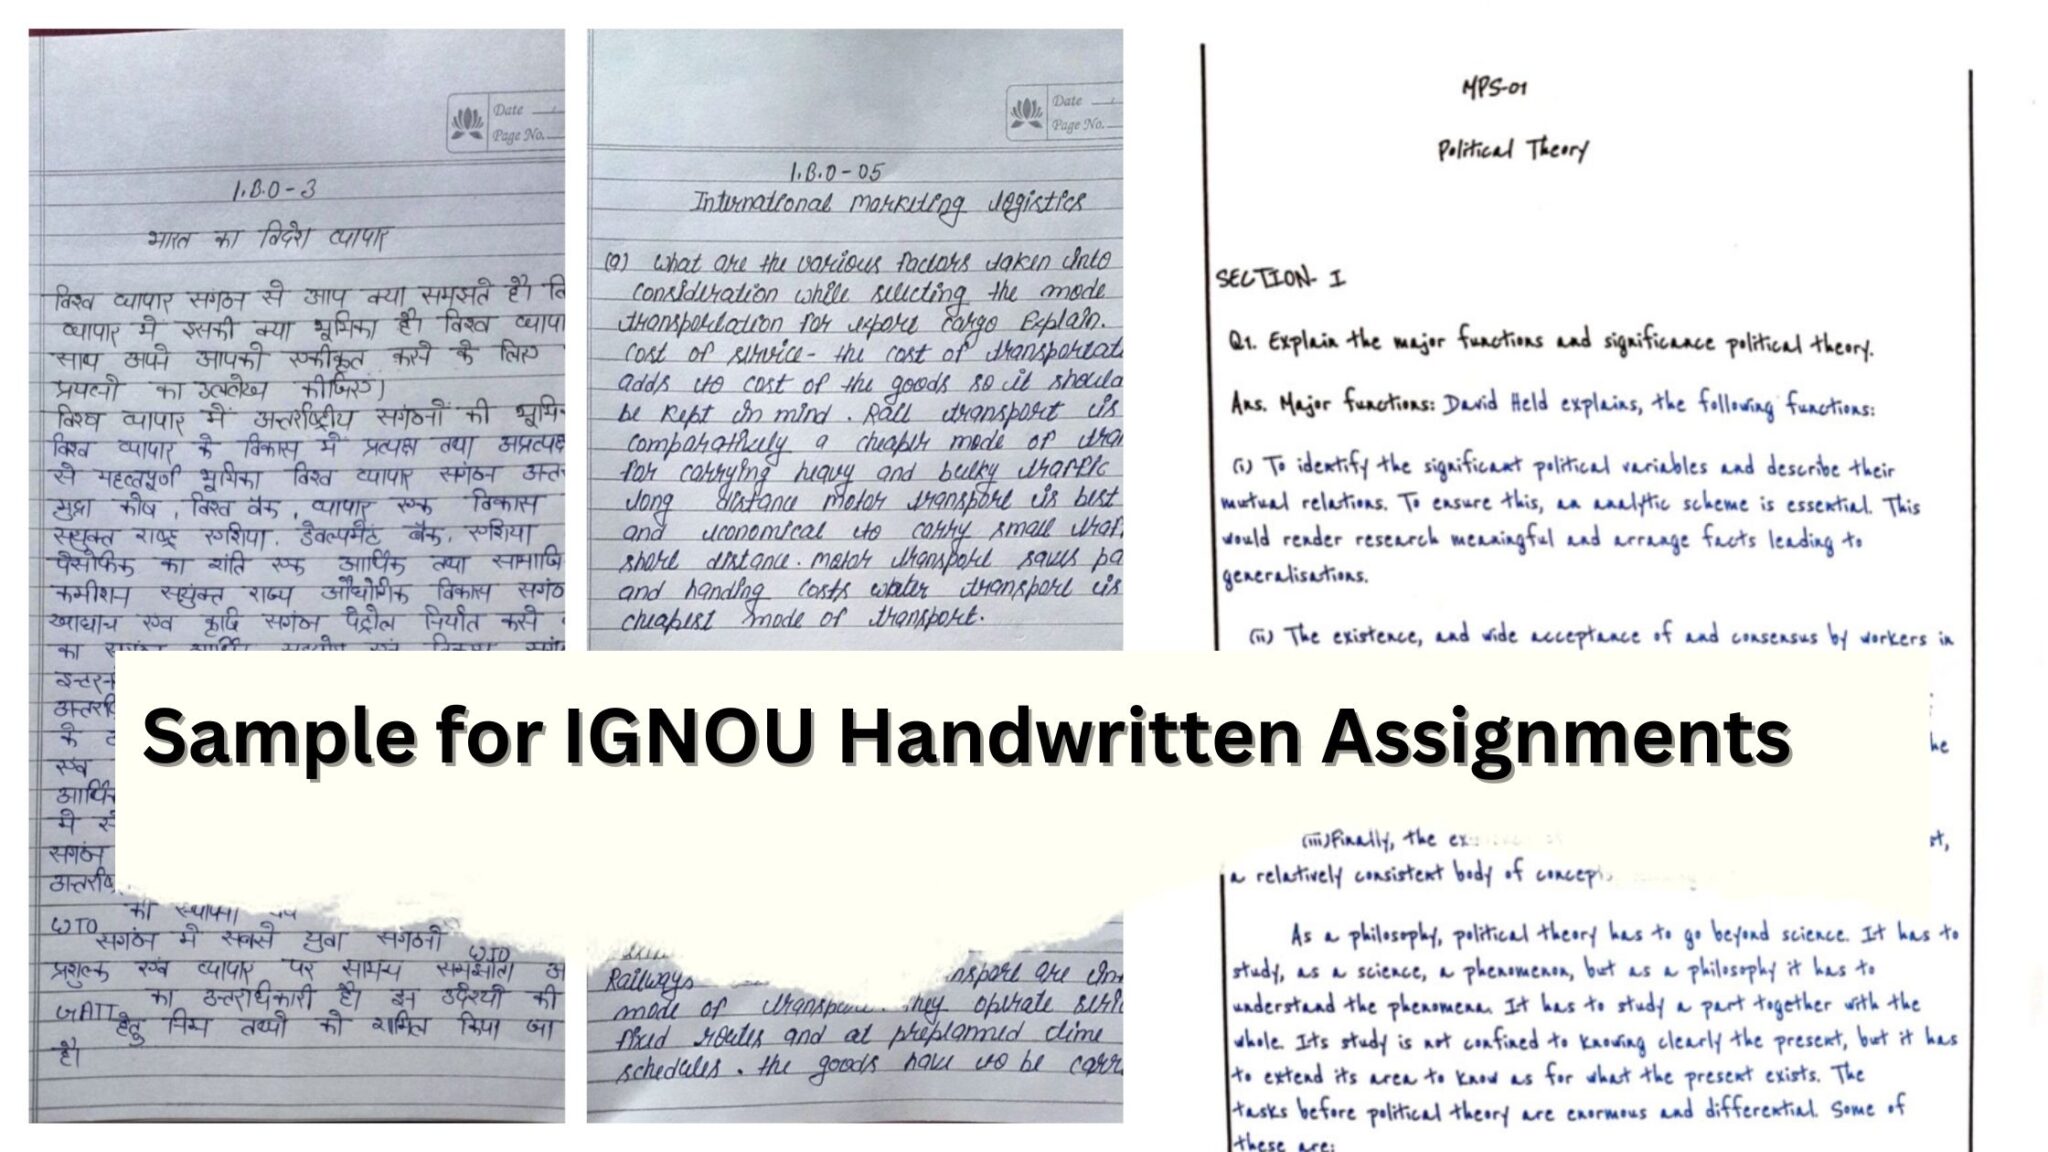 Date
Page No.
I.B.O-3
भारत का विदेश व्यापार
विश्व व्यापार सगंठन से आप क्या समझते है।
व्यापार में इसकी क्या भूमिका है। विश्व
साथ अपने आपको एकीकृत करने के लिए
प्रयत्नो का उल्लेख कीजिए।
विश्व व्यापार में अन्तर्राष्ट्रीय सगंठनों की
विश्व व्यापार के विकास में प्रत्यक्ष तथा
से महत्वपूर्ण भूमिका विश्व व्यापार सगंठन
मुद्रा कोष, विश्व बैंक, व्यापार एक विकास
सयुक्त राष्ट्र एशिया. डेवल्पमेंट बैंक, एशिया
का शांति एक आर्थिक तथा
कमीशन सयुंक्त राज्य औधोगिक विकास
एव कृषि सगंठन पेट्रोल निर्यात करने
का
के
एव
में
सगंठन
की स्थापना
WTO
सगंठन में सबसे युवा सगंठनो
WTO
प्रशुल्क एव व्यापार पर सामान्य समझौता
GATT का उत्तराधिकारी है। इन उदेश्यो की
हेतु निम्न तथ्यो को शामिल किया जा
है।
Date
Page No.
I.B.O-05
International Marketing Logistics
(a) What are the various factors taken into
consideration while selecting the mode
transportation for export cargo Explain.
cost of service- the cost of
adds to cost of the goods so it should
be kept in mind. Rail transport is
comparatively a cheaper mode of
for carrying heavy and bulky traffic
long distance motor transport is best
and economical to carry small
short distance. motor transport saves
and handing costs water transport is
cheapest mode of transport.
Railways are
mode of they operate
fixed routes and at preplanned time
schedules. the goods have to be
MPS-01
Political Theory
SECTION- I
Q1. Explain the major functions and significance political theory.
Ans. Major functions: David Held explains, the following functions:
(i) To identify the significant political variables and describe their
mutual relations. To ensure this, an analytic scheme is essential. This
would render research meaningful and arrange facts leading to
generalisations.
(ii) The existence, and wide acceptance of and consensus by workers in
(iii) Finally, the
a relatively consistent body of
As a philosophy, political theory has to go beyond science. It has to
study, as a science, a phenomenon, but as a philosophy it has to
understand the phenomena. It has to study a part together with the
whole. Its study is not confined to knowing clearly the present, but it has
to extend its area to know as for what the present exists. The
tasks before political theory are enormous and differential. Some of
these are:
Sample for IGNOU Handwritten Assignments